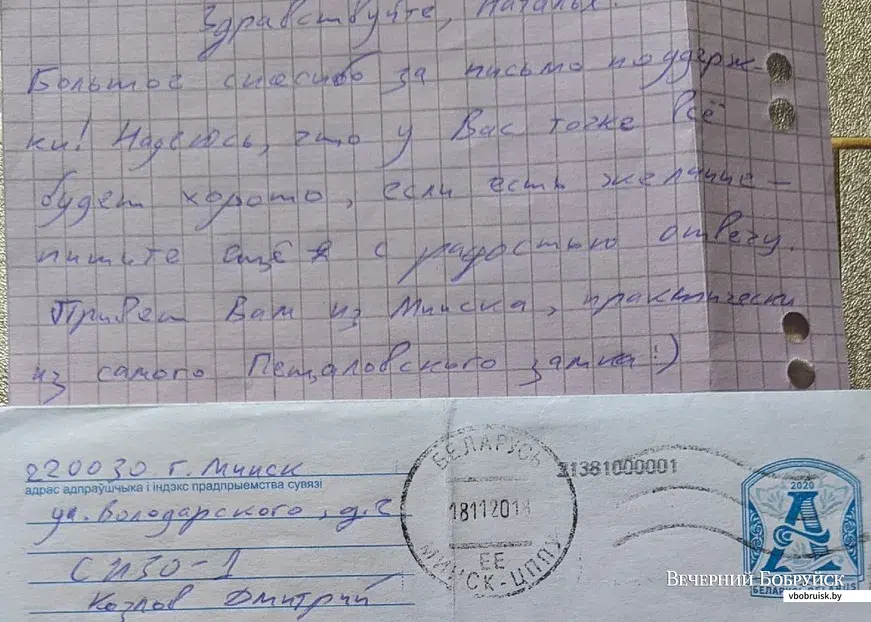 Здравствуйте, Наталья.
Большое спасибо за письмо поддерж-
ки! Надеюсь, что у Вас тоже всё
будет хорошо, если есть желание –
пишите ещё с радостью отвечу.
Привет Вам из Минска, практически
из самого Пещаловского замка :)
220030 г. Минск
адрас адпраўшчыка і індэкс прадпрыемства сувязі
ул. Володарского, д. 2
СИЗО-1
Козлов Дмитрий
БЕЛАРУСЬ
181120
ЕЕ
МИНСК-ЦППУ
31381000001
2020
А
БЕЛАРУСЬ BELARUS
Вечерний Бобруйск
vbobruisk.by